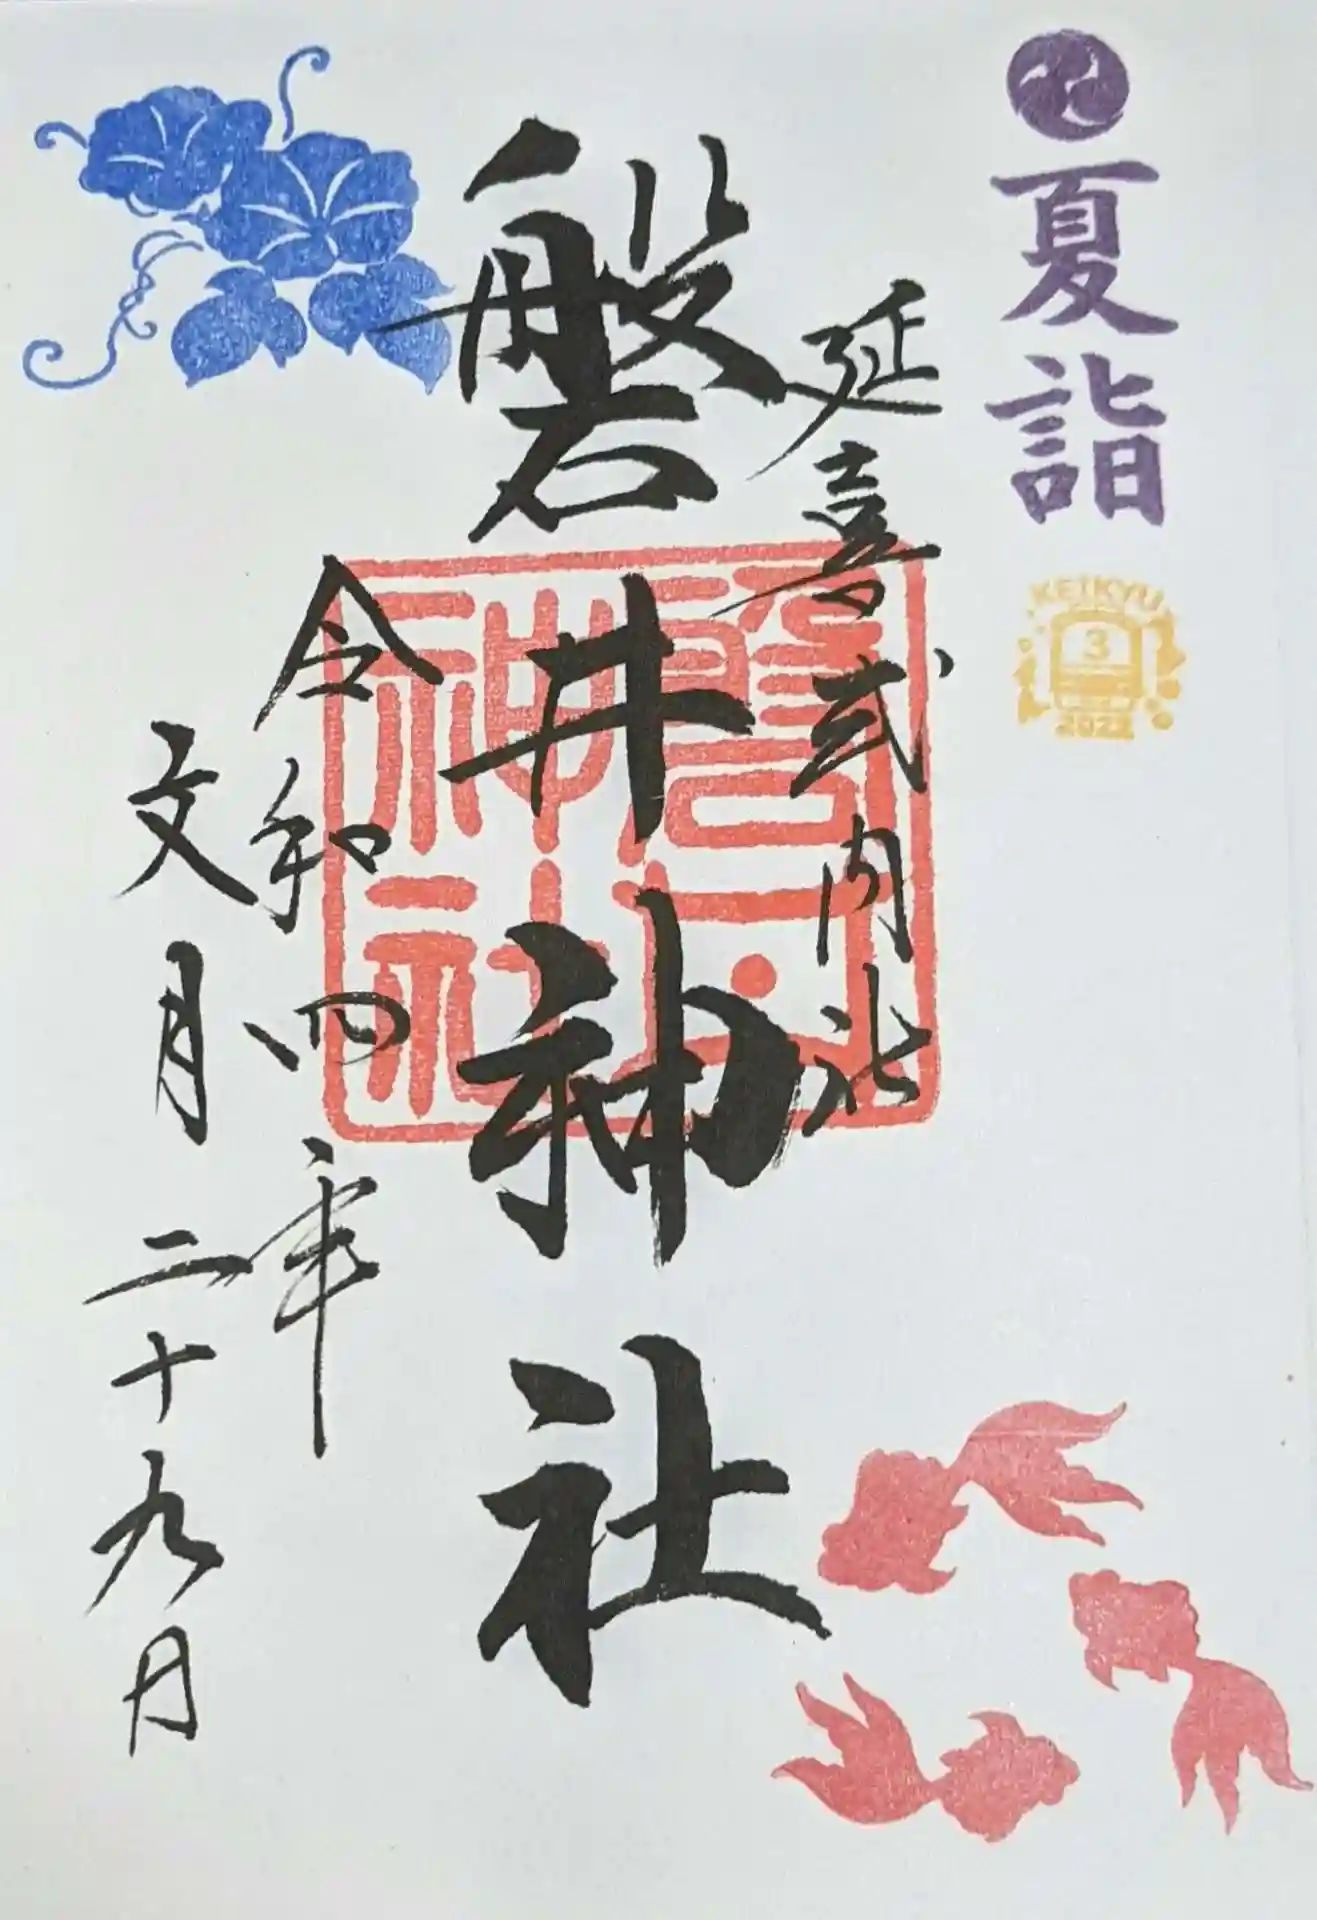 夏詣
KEIKYU
3
2022
延喜式内社
磐井神社
磐井神社
令和四年
文月二十九日